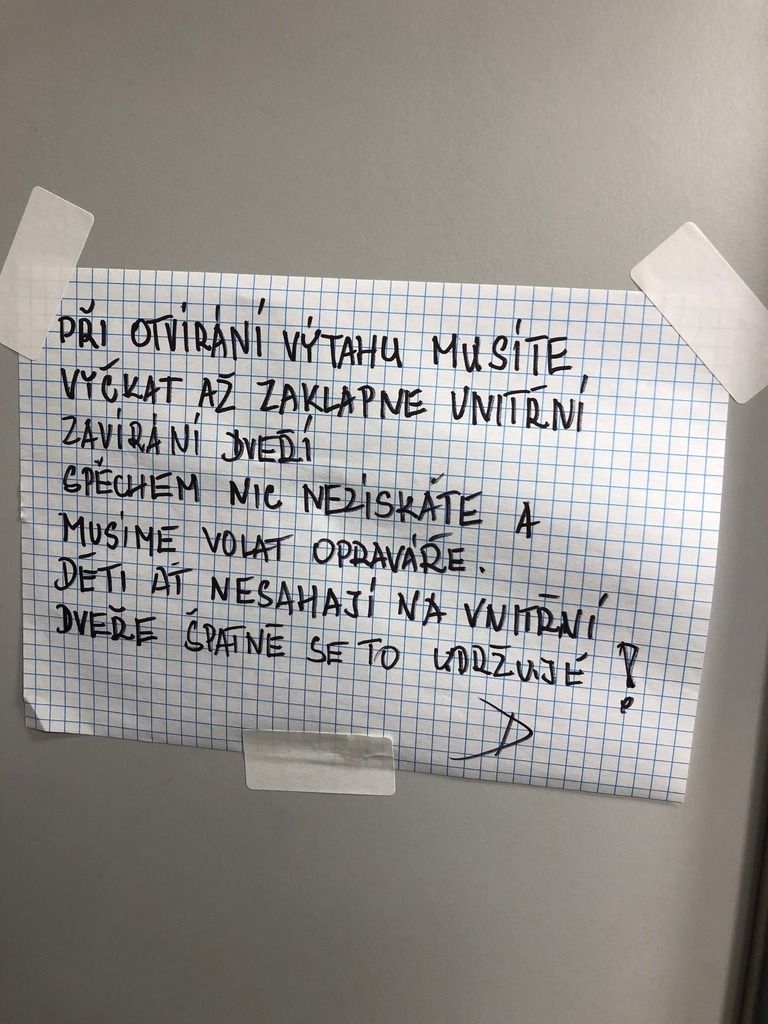 PŘI OTVÍRÁNÍ VÝTAHU MUSÍTE
VYČKAT AŽ ZAKLAPNE VNITŘNÍ
ZAVÍRÁNÍ DVEŘÍ
SPĚCHEM NIC NEZÍSKÁTE A
MUSÍME VOLAT OPRAVÁŘE.
DĚTI AŤ NESAHAJÍ NA VNITŘNÍ
DVEŘE ŠPATNĚ SE TO UDRŽUJÉ !